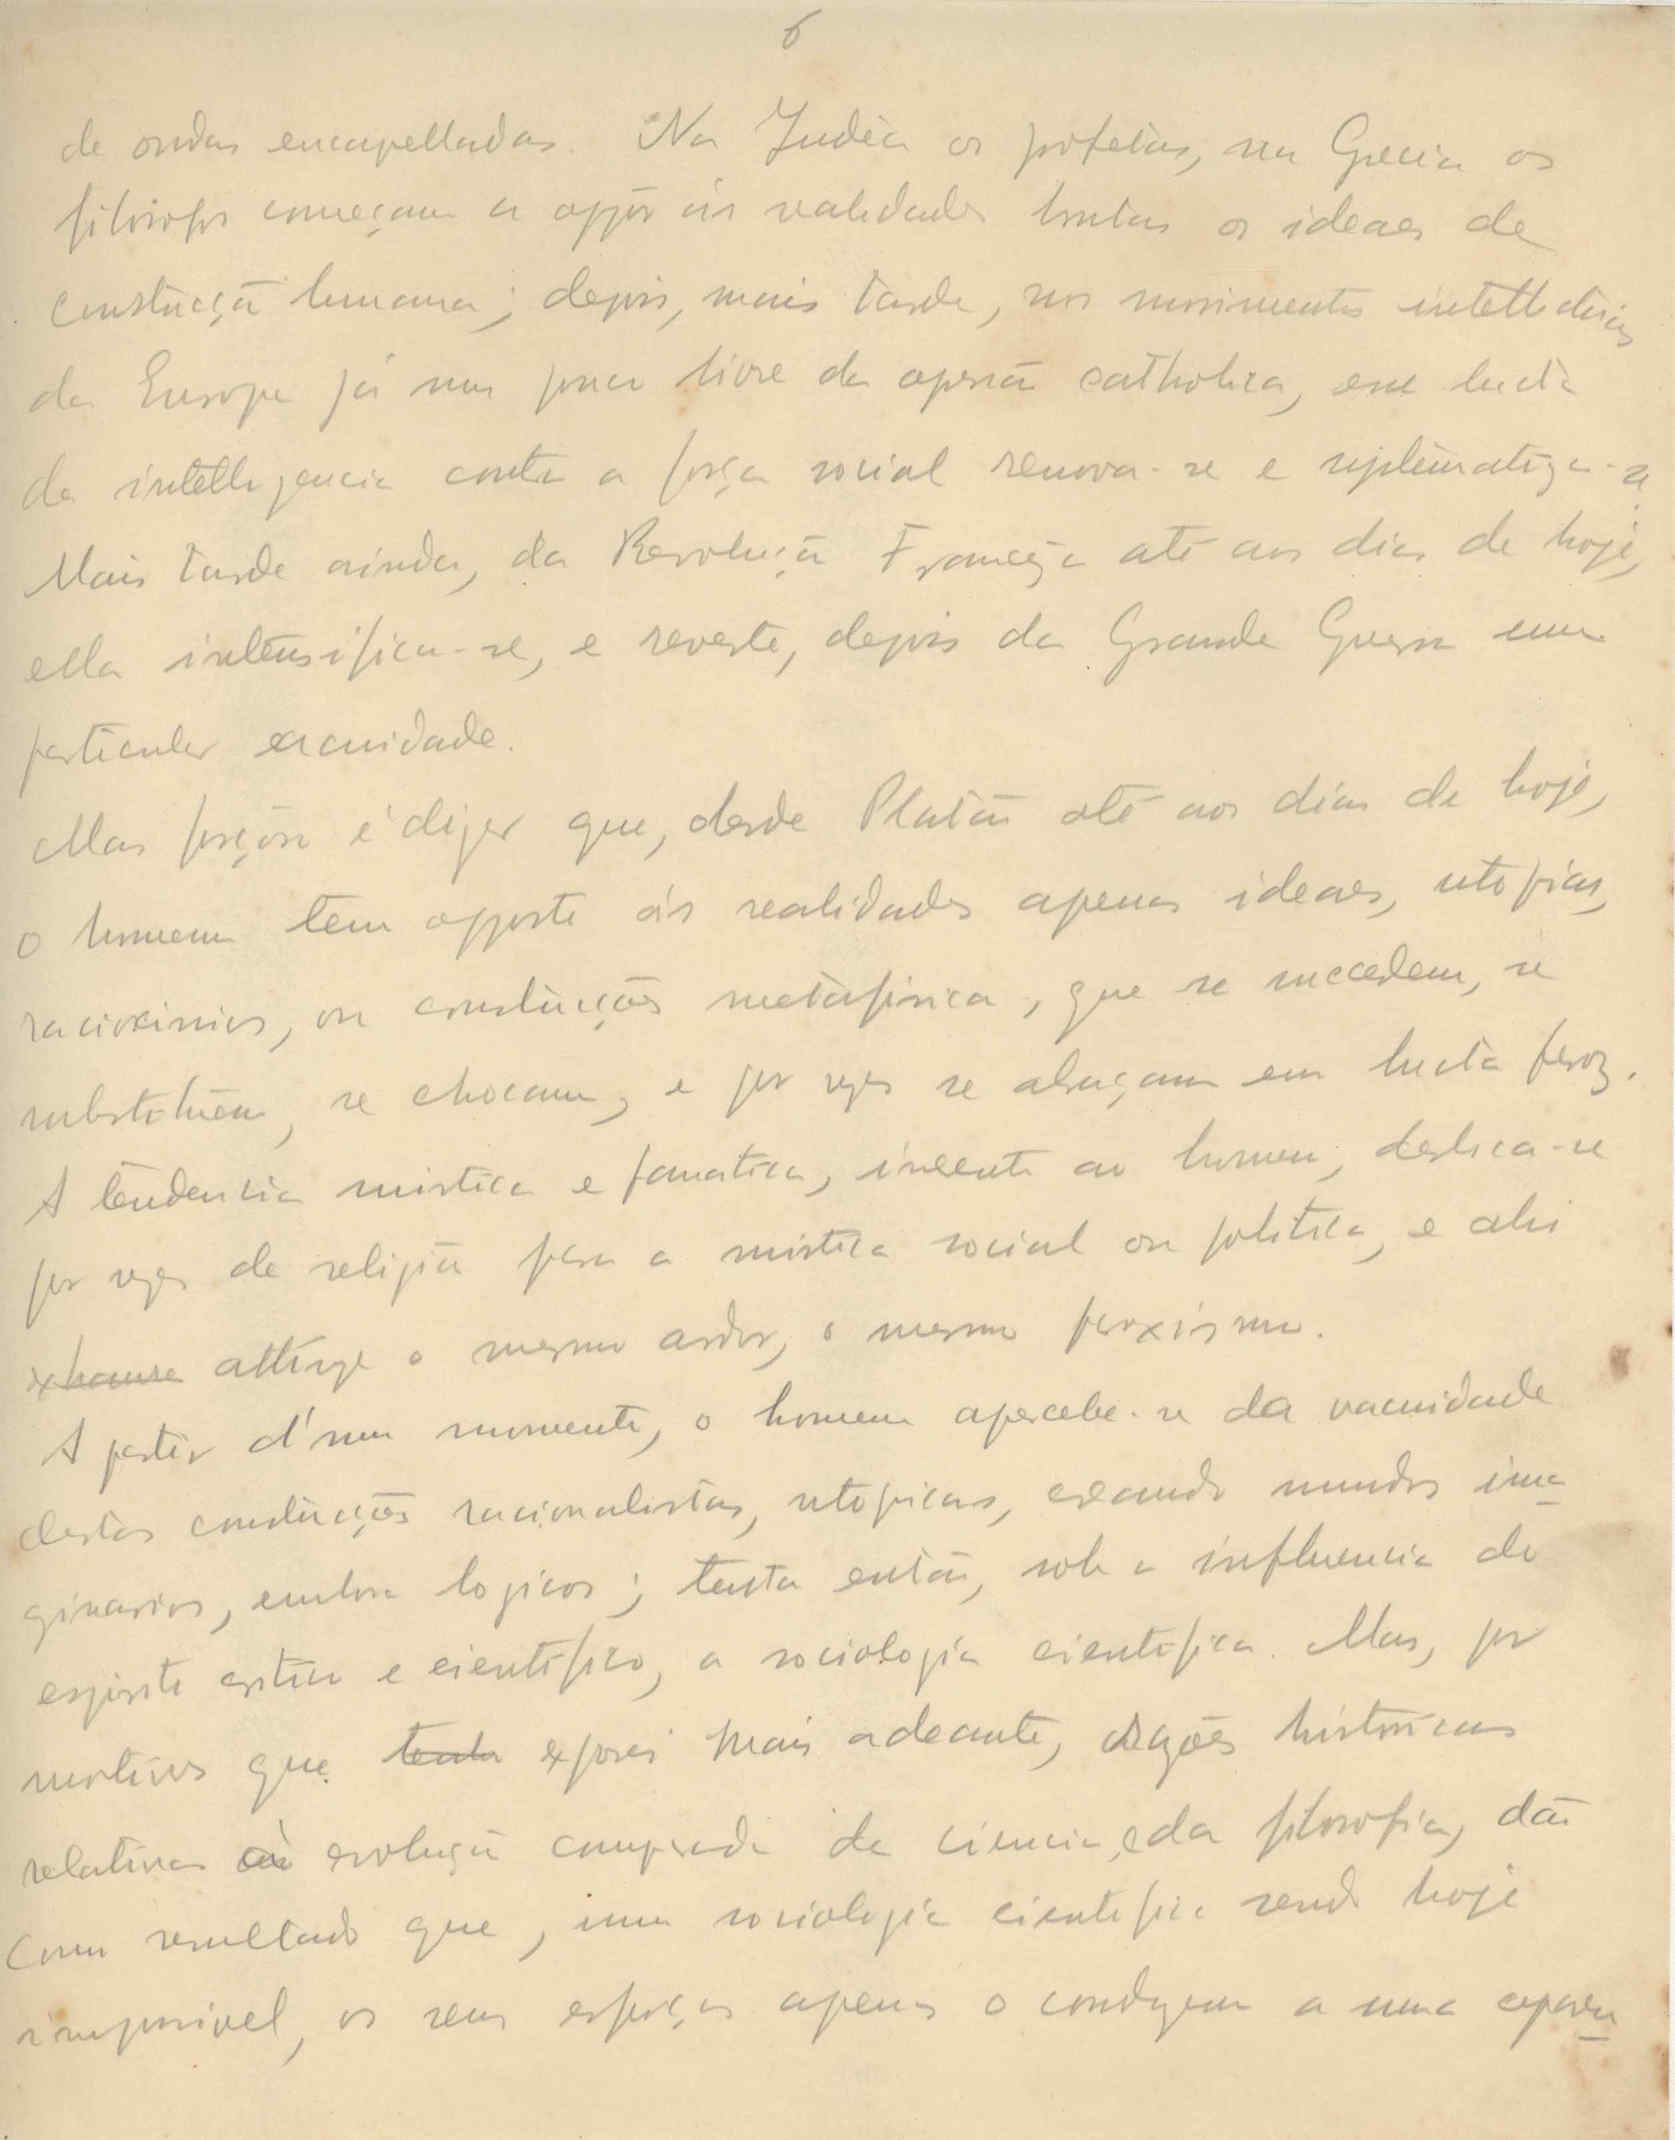 6
de ondas encapelladas. Na Judêa os profetas, na Grecia os
filosofos começam a oppôr ás realidades brutas os ideaes de
construcçã humana; depois, mais tarde, nos movimentos intellectuaes
da Europa já um pouco livre da opressã catholica, essa lucta
da intelligencia contra a força social renova-se e systematiza-se
Mais tarde ainda, da Revoluçã Franceza até aos dias de hoje,
ella intensifica-se, e reveste, depois da Grande Guerra uma
particular acuidade.
Mas forçoso é dizer que, desde Platão até aos dias de hoje,
o homem tem opposto ás realidades apenas ideaes, utopias,
raciocinios, ou construcções metafisicas, que se succedem, se
substituem, se chocam, e por vezes se abraçam em lucta feroz.
A tendencia mistica e fanatica, inerente ao homem, desloca-se
por vezes da religiã para a mistica social ou politica, e ahi
attinge o mesmo ardor, o mesmo paroxismo.
A partir d'um momento, o homem apercebe-se da vacuidade
destas construcções racionalistas, utopicas, creando mundos ima
ginarios, embora logicos; tenta então, sob a influencia do
espirito critico e cientifico, a sociologia cientifica. Mas, por
motivos que tenta exporei mais adeante, razões historicas
relativas á evoluçã comparada da ciencia, e da filosofia, dão
como resultado que, uma sociologia cientifica sendo hoje
impossivel, os seus esforços apenas o conduzem a uma aparen